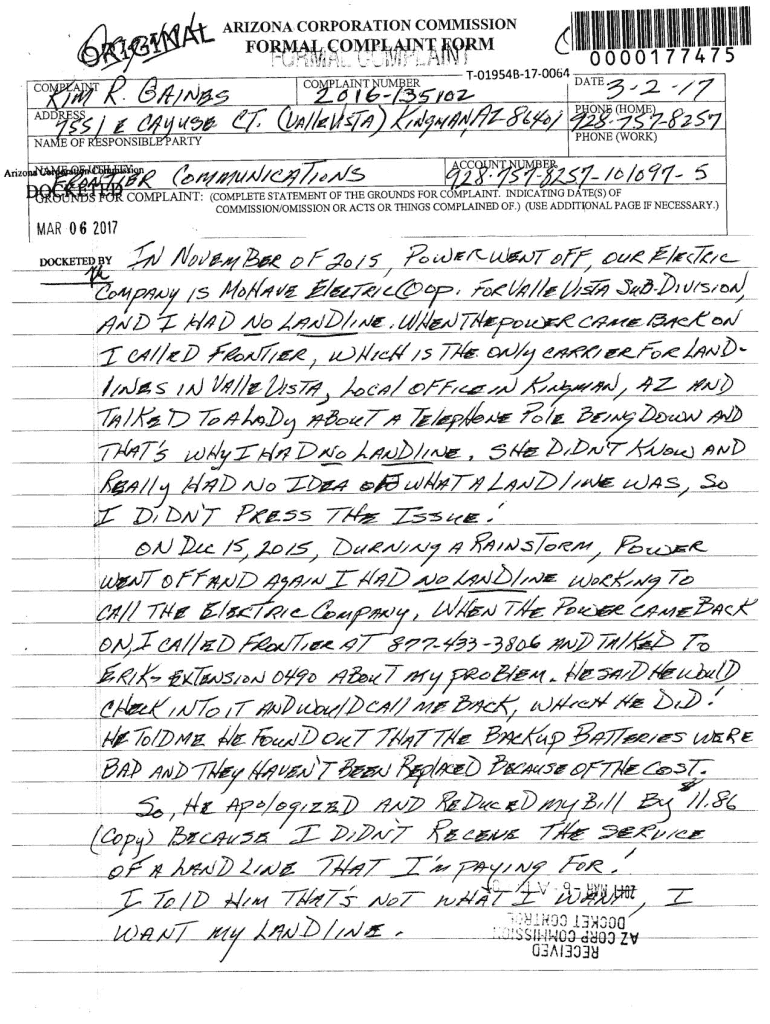 ORIGINAL
ARIZONA CORPORATION COMMISSION
FORMAL COMPLAINT FORM
FORMAL COMPLAINT
0000177475
T-01954B-17-0064
COMPLAINT
KIM R. BAINES
COMPLAINT NUMBER
2016-135102
DATE
3-2-17
ADDRESS
7551 E CAYUSE CT. (VALLE VISTA) KINGMAN, AZ 86401
PHONE (HOME)
928-757-8257
NAME OF RESPONSIBLE PARTY
PHONE (WORK)
Arizona Corporation Commission
NAME OF UTILITY
FRONTIER COMMUNICATIONS
ACCOUNT NUMBER
928-757-8257-101097-5
DOCKETED
GROUNDS FOR COMPLAINT: (COMPLETE STATEMENT OF THE GROUNDS FOR COMPLAINT. INDICATING DATE(S) OF
COMMISSION/OMISSION OR ACTS OR THINGS COMPLAINED OF.) (USE ADDITIONAL PAGE IF NECESSARY.)
MAR 06 2017
DOCKETED BY
IN NOVEMBER OF 2015, POWER WENT OFF, OUR ELECTRIC
COMPANY IS MOHAVE ELECTRIC COOP. FOR VALLE VISTA SUB-DIVISION,
AND I HAD NO LANDLINE. WHEN THE POWER CAME BACK ON
I CALLED FRONTIER, WHICH IS THE ONLY CARRIER FOR LAND-
LINES IN VALLE VISTA, LOCAL OFFICE IN KINGMAN, AZ AND
TALKED TO A LADY ABOUT A TELEPHONE POLE BEING DOWN AND
THAT'S WHY I HAD NO LANDLINE. SHE DIDN'T KNOW AND
REALLY HAD NO IDEA OF WHAT A LANDLINE WAS, SO
I DIDN'T PRESS THE ISSUE!
ON DEC 15, 2015, DURNING A RAINSTORM, POWER
WENT OFF AND AGAIN I HAD NO LANDLINE WORKING TO
CALL THE ELEKTRIC COMPANY. WHEN THE POWER CAME BACK
ON, I CALLED FRONTIER AT 877-433-3806 AND TALKED TO
ERIK- EXTENSION 0490 ABOUT MY PROBLEM. HE SAID HE WOULD
CHECK INTO IT AND WOULD CALL ME BACK, WHICH HE DID!
HE TOLD ME HE FOUND OUT THAT THE BACKUP BATTERIES WERE
BAD AND THEY HAVEN'T BEEN REPLACED BECAUSE OF THE COST.
SO, HE APOLOGIZED AND REDUCED MY BILL BY $11.86
(COPY) BECAUSE I DIDN'T RECEIVE THE SERVICE
OF A LAND LINE THAT I'M PAYING FOR!
I TOLD HIM THAT'S NOT WHAT I WANT, I
WANT MY LANDLINE.
RECEIVED
AZ CORP COMMISSION
DOCKET CONTROL
2017 MAR -6 A